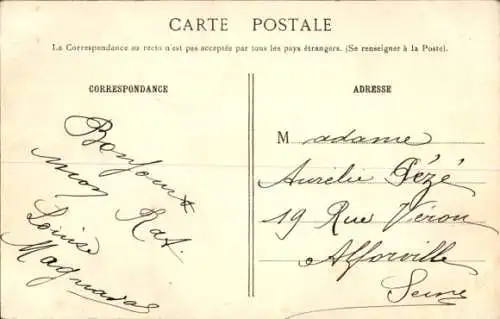 CARTE POSTALE
La Correspondance au recto n'est pas acceptée par tous les pays étrangers. (Se renseigner à la Poste).
CORRESPONDANCE
Bonjour
mon Rat.
Louise
ADRESSE
Madame
Aurélie Pézé
19 Rue Véron
Alforville
Seine